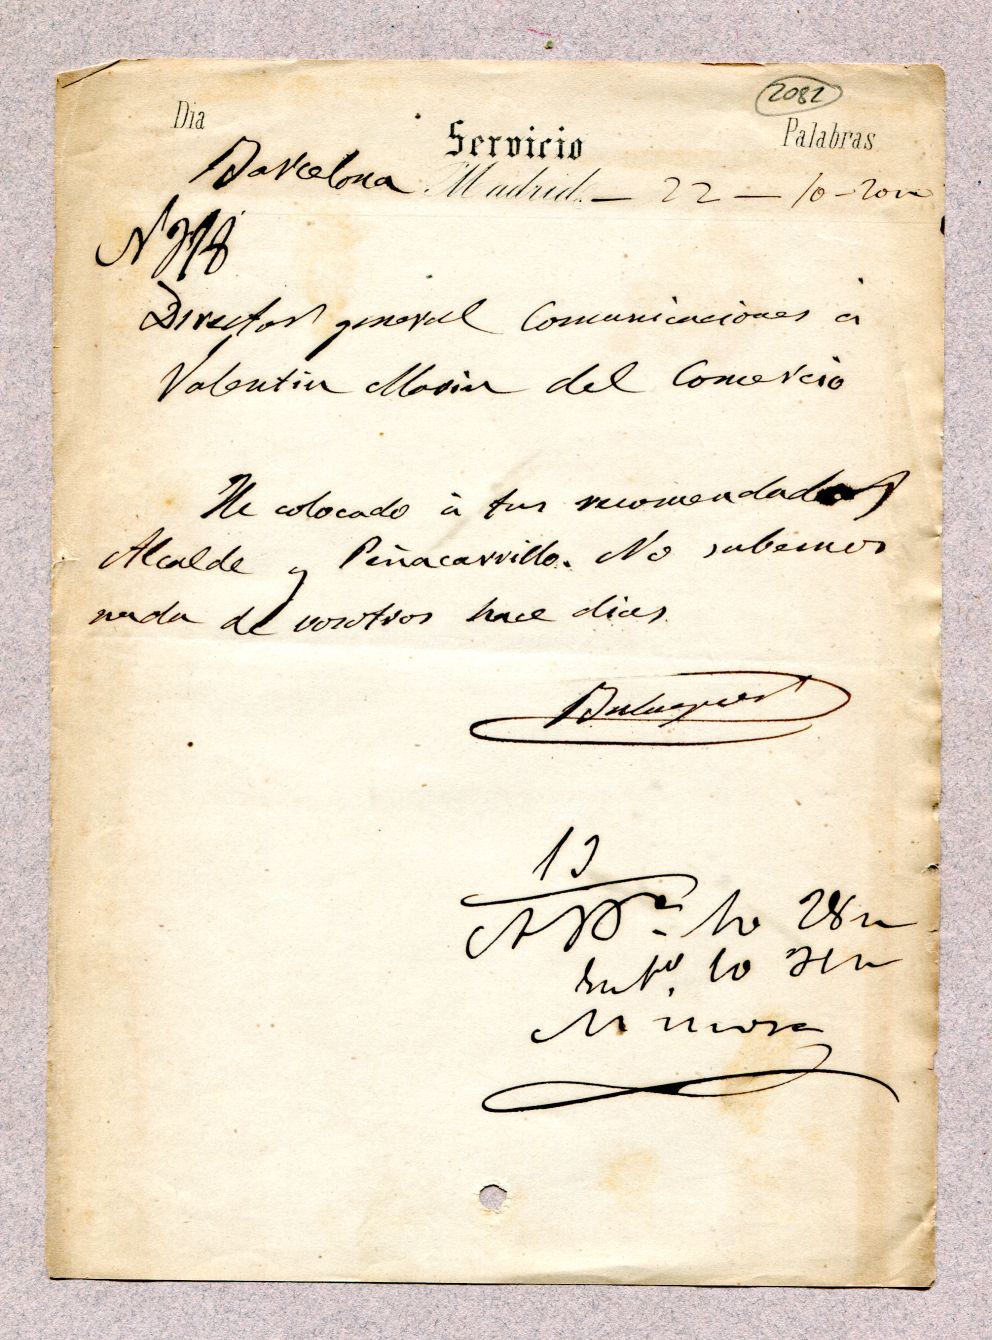 2082
Dia Servicio Palabras
Barcelona Madrid — 22 — 10-20 m
Director general Comunicaciones á
Valentin Marin del Comercio
He colocado á tus recomendados
Alcalde y Peñacarrillo. No sabemos
nada de vosotros hace dias
Balaguer
13
10 28 n
10 31 n